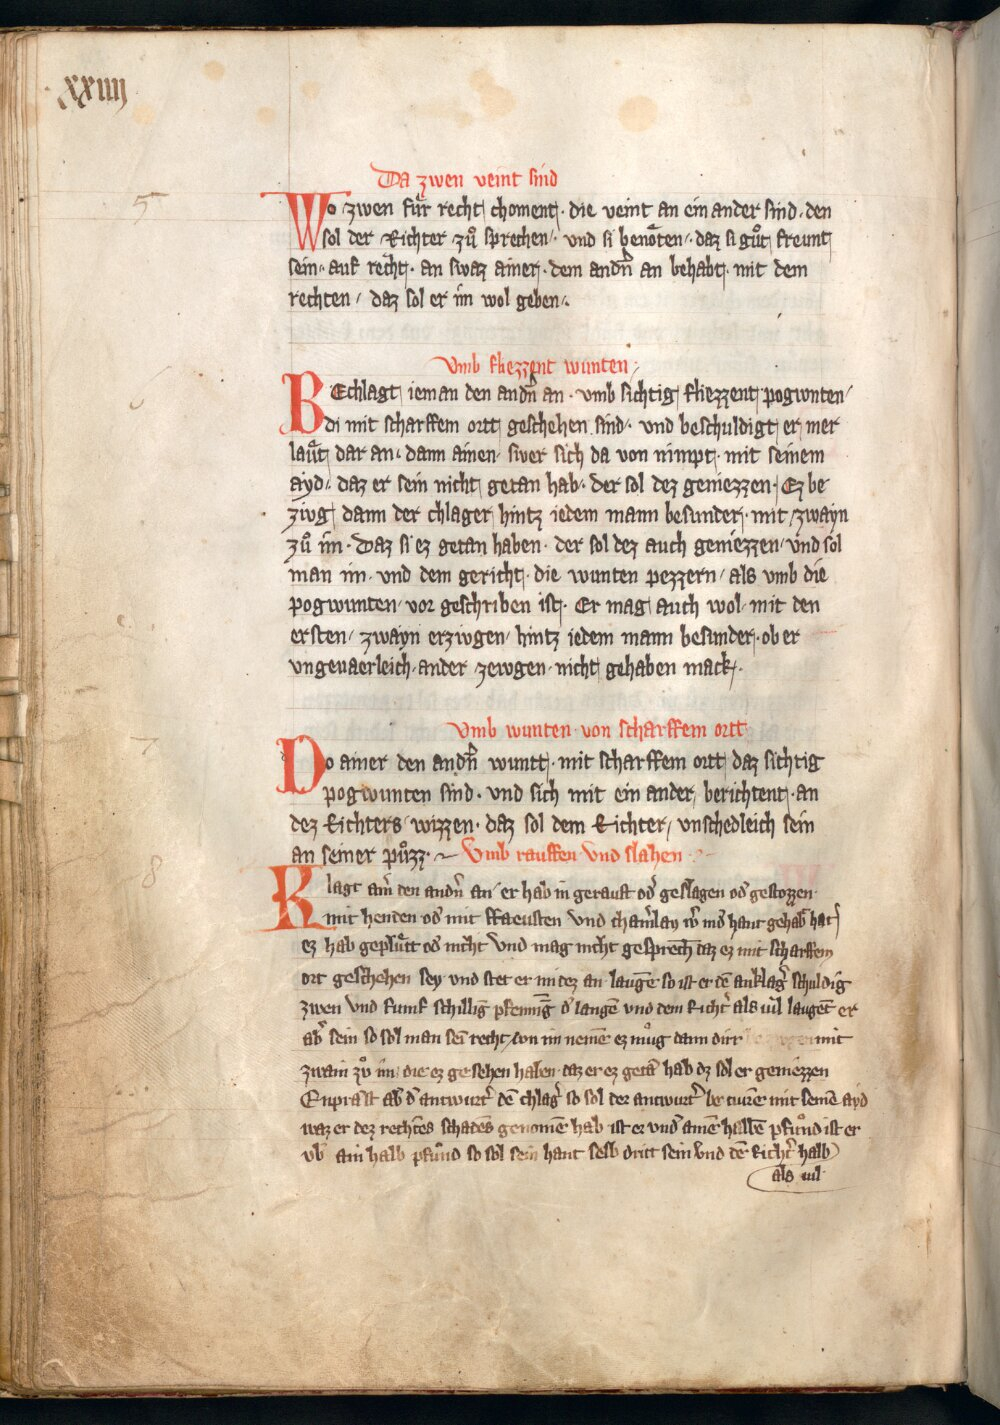 xxiiij
Da zwen veint sind
5
Wo zwen fuͤr recht choment · die veint an ein ander sind · den
sol der Richter zuͦ sprechen · vnd si benoͤten · daz si guͦt freunt
sein · auf recht · an swaz ainer · dem andn̄ an behabt · mit dem
rechten / daz sol er im wol geben ·
Vmb fliezzent wunten ·
6
BEchlagt ieman den andn̄ an · vmb sichtig fliezzent pogwnten /
di mit scharffem ortt geschehen sind · vnd beschuldigt er mer
laͤut dar an · dann ainen · swer sich da von nimpt · mit seinem
ayd · daz er sein nicht getan hab · der sol dez geniezzen · Ez be
zivg dann der chlager hintz iedem mann besunder · mit zwayn
zuͦ im · Daz si ez getan haben · der sol dez auch geniezzen / vnd sol
man im · vnd dem gericht · die wunten pezzern / als vmb die
pogwunten / vor geschriben ist · Er mag auch wol · mit den
ersten / zwayn erzivgen / hintz iedem mann besunder · ob er
vngeuaerleich · ander zewgen · nicht gehaben mack ·
Vmb wunten von scharffem ortt
7
Do ainer den andn̄ wuntt · mit scharffem ortt daz sichtig
pogwunten sind · vnd sich mit ein ander berichtent · an
dez Richters wizzen · daz sol dem Richter / vnschedleich sein
an seiner puͦzz · Vmb rauffen vnd slahen
8
Klagt am̄ den andn̄ an / er hab in geraust od' geslagen od' gestozzen
mit henden od' mit ffaeusten vnd
ez hab gepluͤtt od' nicht vnd mag nicht gesprech̄ daz ez mit scharffem
ort geschehen sey vnd stet er im dez an laugē so ist er dē anklag' schuldig
zwen vnd funf schillīg pfenning d' langē vnd dem Richt' als uil laugēt er
ab' sein so sol man sei recht von im nemē ez muͦg dann dirr mit
zwain zuͦ im die ez gesehen haben daz er ez getā hab dz sol er geniezzen
Enprast ab' d' antwurt' dē chlag' so sol der antwurt' be turē mit seinē ayd
waz er dez rechtēs schadēs genomē hab ist ez vnd' ainē halbē pfund ist er
vb' ain halb pfund so sol sein hant selb dritt sein vnd dē Richt' halb
als uil